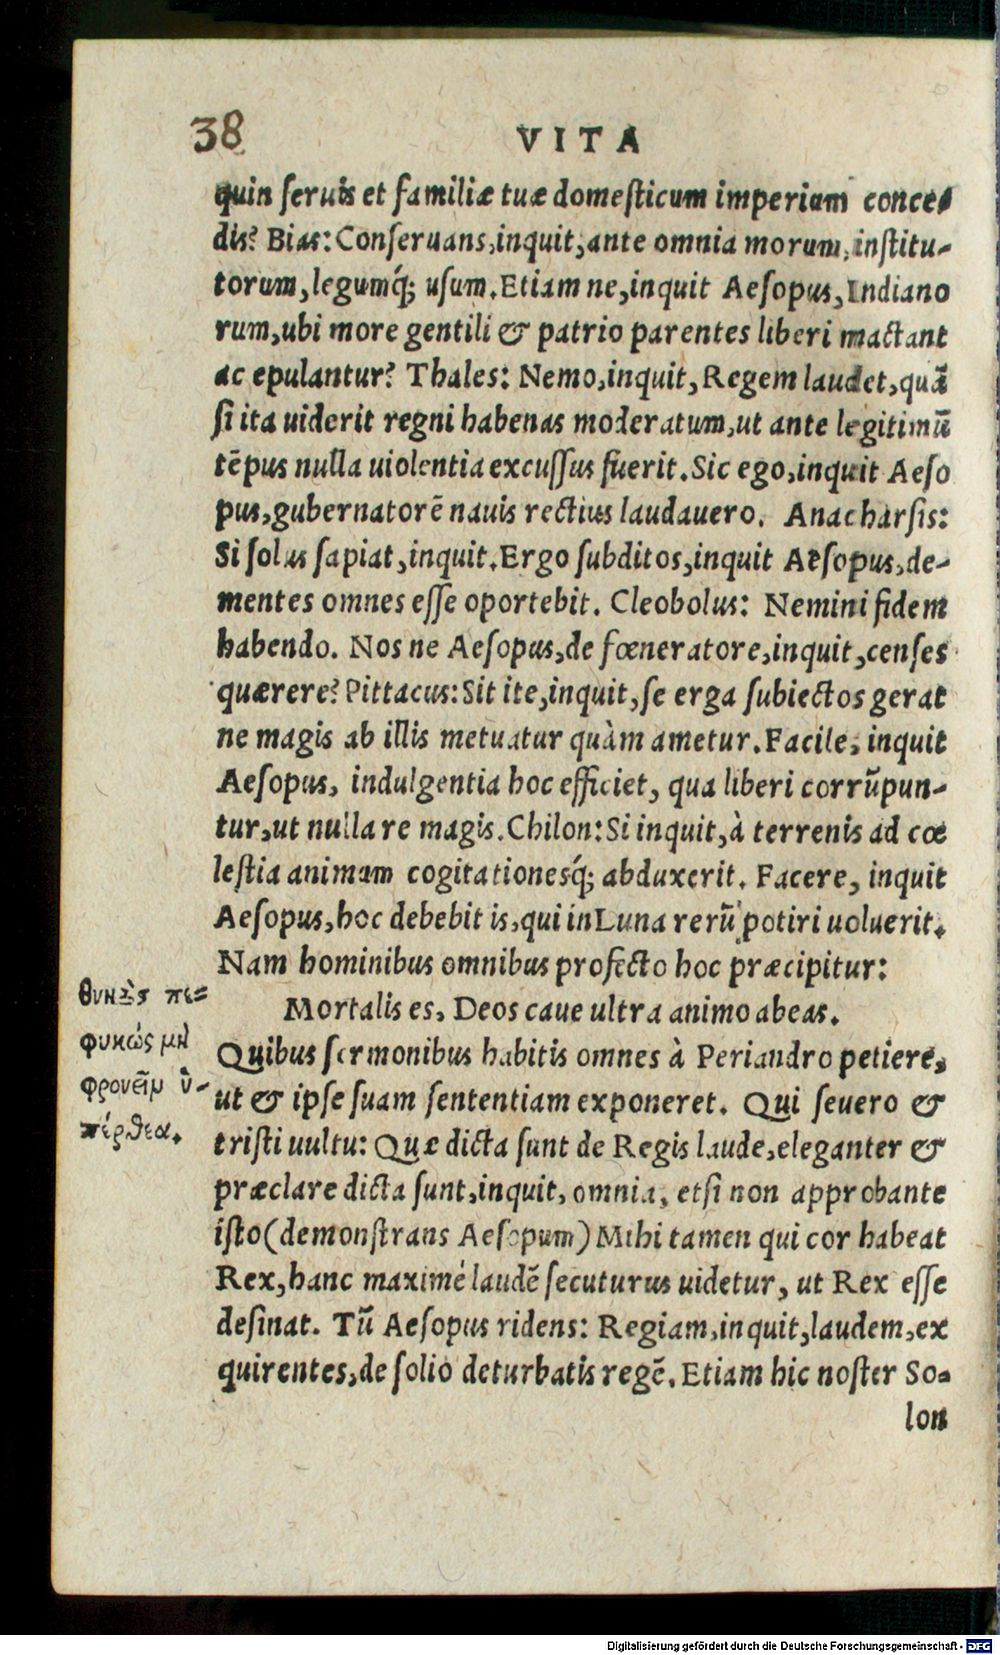 38 VITA
quin ſeruis et familiæ tuæ domeſticum imperium conce-
dis? Bias: Conſeruans, inquit, ante omnia morum, inſtitu-
torum, legumq́; uſum. Etiam ne, inquit Aeſopus, Indiano
rum, ubi more gentili & patrio parentes liberi mactant
ac epulantur? Thales: Nemo, inquit, Regem laudet, quā
ſi ita uiderit regni habenas moderatum, ut ante legitimū
tēpus nulla uiolentia excuſſus fuerit. Sic ego, inquit Aeſo
pus, gubernatorē nauis rectius laudauero. Anacharſis:
Si ſolus ſapiat, inquit. Ergo ſubditos, inquit Aeſopus, de-
mentes omnes eſſe oportebit. Cleobolus: Nemini fidem
habendo. Nos ne Aeſopus, de fœneratore, inquit, cenſes
quærere? Pittacus: Sit ite, inquit, ſe erga ſubiectos gerat
ne magis ab illis metuatur quàm ametur. Facile, inquit
Aeſopus, indulgentia hoc efficiet, qua liberi corrūpun-
tur, ut nulla re magis. Chilon: Si inquit, à terrenis ad cœ
leſtia animam cogitationesq́; abduxerit. Facere, inquit
Aeſopus, hoc debebit is, qui in Luna rerū potiri uoluerit.
Nam hominibus omnibus profecto hoc præcipitur:
Mortalis es, Deos caue ultra animo abeas.
Quibus ſermonibus habitis omnes à Periandro petiere,
ut & ipſe ſuam ſententiam exponeret. Qui ſeuero &
triſti uultu: Quæ dicta ſunt de Regis laude, eleganter &
præclare dicta ſunt, inquit, omnia, etſi non approbante
iſto (demonſtrans Aeſopum) Mihi tamen qui cor habeat
Rex, hanc maximè laudē ſecuturus uidetur, ut Rex eſſe
deſinat. Tū Aeſopus ridens: Regiam, inquit, laudem, ex
quirentes, de ſolio deturbatis regē. Etiam hic noſter So-
lon
θνηὸς πε-
φυκὼς μὴ
φρονεῖν ὑ-
πέρθεα.